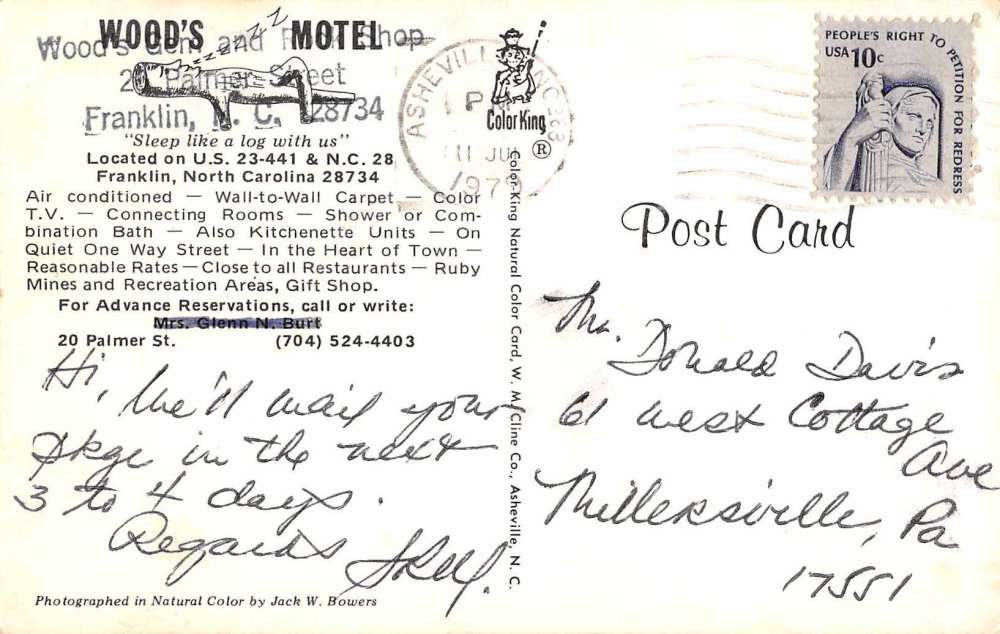 WOOD'S MOTEL
Wood's Gem and Shop
Palmer Street
Franklin, N. C. 28734
zzzzz
"Sleep like a log with us"
Located on U.S. 23-441 & N.C. 28
Franklin, North Carolina 28734
Air conditioned — Wall-to-Wall Carpet — Color
T.V. — Connecting Rooms — Shower or Com-
bination Bath — Also Kitchenette Units — On
Quiet One Way Street — In the Heart of Town —
Reasonable Rates — Close to all Restaurants — Ruby
Mines and Recreation Areas, Gift Shop.
For Advance Reservations, call or write:
Mrs. Glenn N. Burt
20 Palmer St. (704) 524-4403
Hi,
We'll mail your
pkge in the next
3 to 4 days.
Regards
Photographed in Natural Color by Jack W. Bowers
ASHEVILLE, NC 288
PM
11 JUL
1979
Color King
®
Color King Natural Color Card, W. M. Cline Co., Asheville, N. C.
PEOPLE'S RIGHT TO PETITION FOR REDRESS
USA 10c
Post Card
Mr. Donald Davis
61 West Cottage
Ave
Millersville, Pa
17551